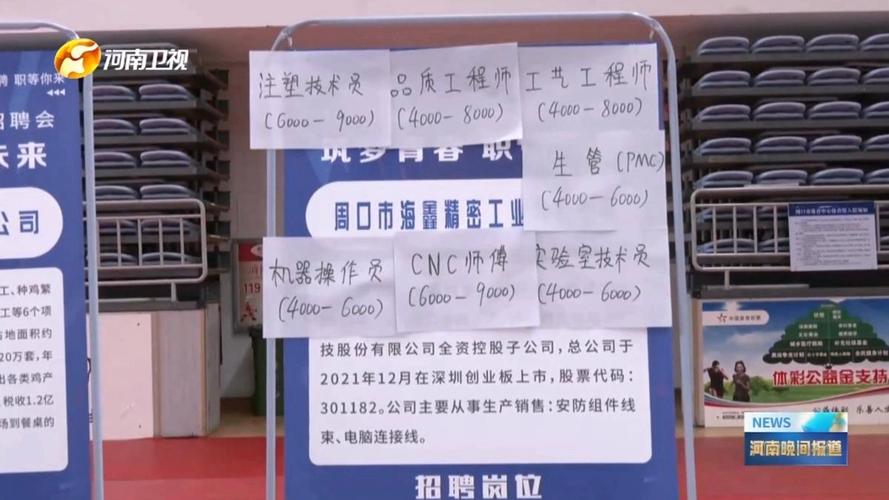 河南卫视
聘 职等你来
招聘会
未来
公司
工、种鸡繁
工等6个项
占地面积约
20万套，年
出各类鸡产
税收1.2亿
场到餐桌的
注塑技术员
(6000-9000)
品质工程师
(4000-8000)
工艺工程师
(4000-8000)
生管(PMC)
(4000-6000)
筑梦青春 职
周口市海鑫精密工业
机器操作员
(4000-6000)
CNC师傅
(6000-9000)
实验室技术员
(4000-6000)
技股份有限公司全资控股子公司，总公司于
2021年12月在深圳创业板上市，股票代码：
301182。公司主要从事生产销售：安防组件线
束、电脑连接线。
招聘岗位
119
体彩公益金支持
NEWS
河南晚间报道